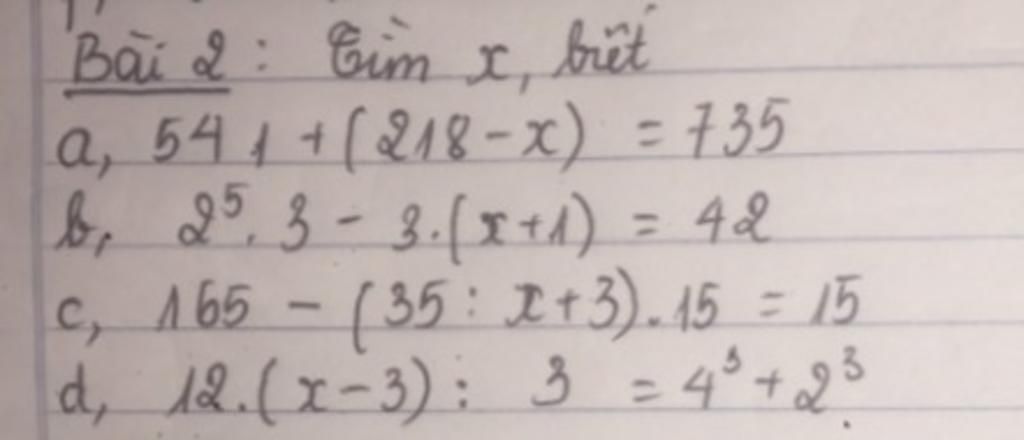 Bài 2 : Tìm x, biết
a, 541 + (218 - x) = 735
b, 2⁵. 3 - 3.(x+1) = 42
c, 165 - (35 : x+3).15 = 15
d, 12.(x-3) : 3 = 4³ + 2³